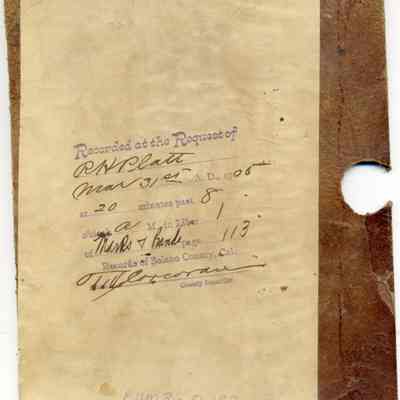 Recorded at the Request of
R H Platt
Mar 31st A. D., 1905
at 20 minutes past 8
o'clock a M., in Liber 1
of Marks & Brands page 113
Records of Solano County, Cal.
Corcoran
County Recorder